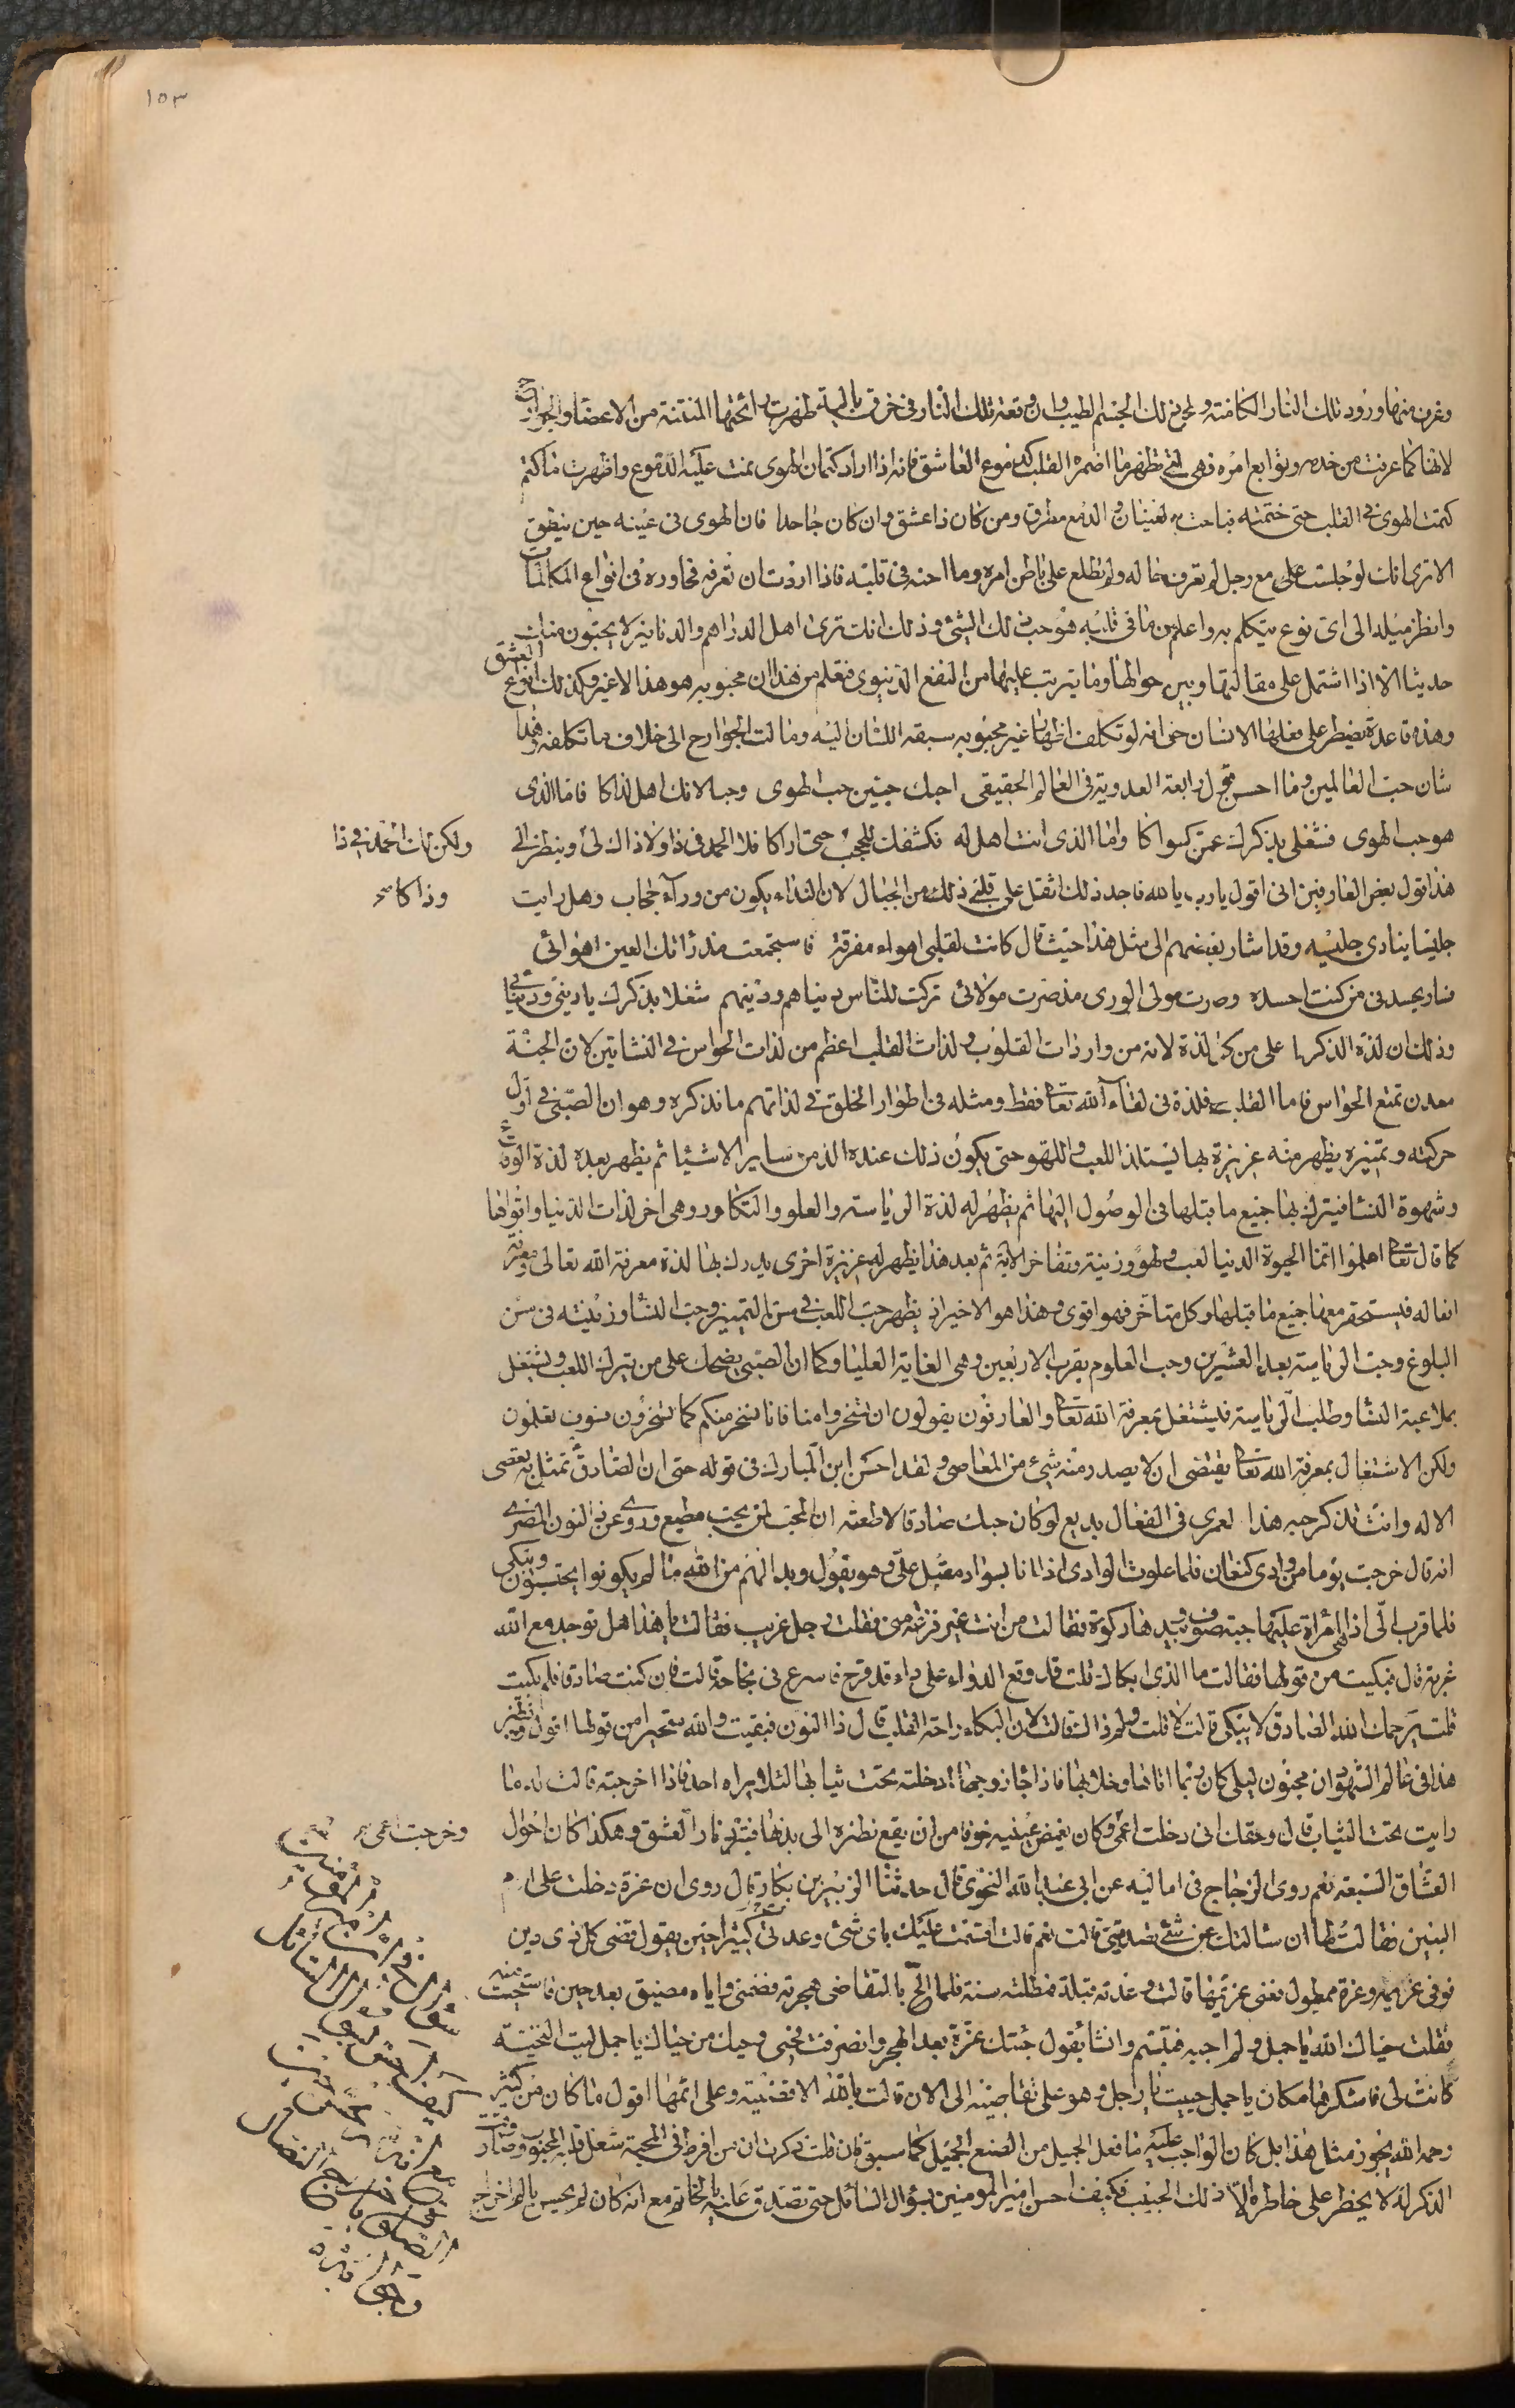 ١٥٣
وغرف منها ورود تلك النار الكامنة ولج في ذلك الجسم الطيب وان وقعة تلك النار في خرق بالية ظهرت رائحتها المنتنة من الاعضا والجوارح
لانها كما عرفت من خدمه وتوابع امره فهي التي تظهر ما اضمره القلب كدموع العاشق فانه اذا اراد كتمان الهوى نمت عليه الدموع واظهرت ما كتم
كتمت الهوى في القلب حتى ختمته فباحت به لعينان والدمع مطرق ومن كان ذا عشق وان كان جاحدا فان الهوى في عينه حين ينطق
الا ترى انك لو جلست على مع رجل لم تعرف حاله ولم تطلع على باطن امره وما احنه في قلبه فاذا اردت ان تعرفه فحاوره في انواع المكالمات
وانظر ميله الى اى نوع يتكلم به واعلم من ما في قلبه هو حب ذلك الشئ وذلك انك ترى اهل الدراهم والدنانير لا يحبون منك
حديثا الا اذا اشتمل على مقالتها وبين حوالها وما يترتب عليها من النفع الدنيوى فتعلم من هذا ان محبوبه هو هذا لا غير وكذلك انواع العشق
وهذه قاعدة يضطر على فعلها الانسان حتى انه لو تكلف اظهار غير محبوبه سبقه اللسان اليه ومالت الجوارح الى خلاف ما تكلفه وهذا
شان حب العالمين وما احسن قول رابعة العدوية في العالم الحقيقى احبك حبين حب الهوى وحبا لانك اهل لذاكا فاما الذى
هو حب الهوى فشغلى بذكرك عمن سواكا واما الذى انت اهل له فكشفك للحجب حتى اراكا فلا الحمد في ذا ولا ذاك لى وينظر الى
ولكن لك الحمد في ذا وذاكا صح
هذا قول بعض العارفين انى اقول يارب يا الله فاجد ذلك اثقل على قلبى ذلك من الجبال لان النداء يكون من وراء حجاب وهل رايت
جليسا ينادى جليسه وقد اشار بعضهم الى مثل هذا حيث قال كانت لقلبى اهواء مفرقة فاستجمعت مذ راتك العين اهوائى
فصار يحسدنى من كنت احسده وصرت مولى الورى مذ صرت مولائى تركت للناس دنياهم ودينهم شغلا بذكرك يا دينى ودنيائى
وذلك ان لذة الذكر اعلى من كل لذة لانه من واردات القلوب ولذات القلب اعظم من لذات الحواس في النشاتين لان الجنة
معدن تمتع الحواس فاما القلب فلذته في لقاء الله تعا فقط ومثله في اطوار الخلق في لذاتهم ما نذكره وهو ان الصبى في اول
حركته وتميزه يظهر منه غريزة بها يستلذ اللعب واللهو حتى يكون ذلك عنده الذ من ساير الاشيا ثم يظهر بعده لذة الوقاع
وشهوة النسا فيترك بها جميع ما قبلها في الوصول اليها ثم يظهر له لذة الرياسة والعلو والتكاثر وهى اخر لذات الدنيا واقواها
كما قال تعا اعلموا انما الحيوة الدنيا لعب ولهو وزينة وتفاخر الاية ثم بعد هذا يظهر له غريزة اخرى يدرك بها لذة معرفة الله تعالى ومعرفة
افعاله فيستحقر معها جميع ما قبلها وكل متاخر فهو اقوى وهذا هو الاخير اذ يظهر حب اللعب في سن التميز وحب النسا وزينته في سن
البلوغ وحب الرياسة بعد العشرين وحب العلوم بقرب الاربعين وهى الغاية العليا وكما ان الصبى يضحك على من يترك اللعب ويشتغل
بملاعبة النسا وطلب الرياسة فليشتغل بمعرفة الله تعا والعارفون يقولون ان تسخروا منا فانا نسخر منكم كما تسخرون فسوف تعلمون
ولكن الاشتغال بمعرفة الله تعا يقتضى ان لا يصدر منه شئ من المعاصى ولقد احسن ابن المبارك في قوله حتى ان الصادق تمثل به تعصى
الاله وانت تذكر حبه هذا لعمرى في الفعال بديع لو كان حبك صادقا لاطعته ان المحب لمن يحب مطيع وروى عن ذى النون المصرى
انه قال خرجت يوما من وادى كنعان فلما علوت الوادى اذا انا بسواد مقبل على وهو يقول وبدا لهم من الله ما لم يكونوا يحتسبون ويبكى
فلما قرب الى اذا هى امراة عليها جبة صوف وبيدها ركوة فقالت من انت غير فزعة منى فقلت رجل غريب فقالت يا هذا هل توجد مع الله
غربة قال فبكيت من قولها فقالت ما الذى ابكاك قلت قد وقع الدواء على داء قد قرح فاسرع في نجاحه قالت فان كنت صادقا فلم بكيت
قلت يرحمك الله الصادق لا يبكى قالت لا قلت ولم ذاك قالت لان البكاء راحة القلب قال ذا النون فبقيت والله متحيرا من قولها اقول ونظير
هذا في عالم الشهوان مجنون ليلى كان ربما اتاها وخلا بها فاذا جا زوجها ادخلته تحت ثيابها لئلا يراه احد فاذا اخرجته قالت له ما
رايت تحت الثياب قال وحقك انى دخلت اعمى وكان يغمض عينيه خوفا من ان يقع نظره الى بدنها فتبرد نار العشق وهكذا كان احوال
وخرجت اعمى صح
العشاق السبعة نعم روى الزجاج في اماليه عن ابى عبد الله النحوى قال حدثنا الزبير بن بكار قال روى ان عزة دخلت على ام
البنين فقالت لها ان سالتك عن شئ تصدقينى قالت نعم قالت اقسمت عليك باى شئ وعدتى كثيرا حين يقول قضى كل ذى دين
فوفى غريمه وعزة ممطول معنى غريمها قالت وعدته قبلة فمطلته سنة فلما الح بالتقاضى هجرته فضمنى واياه مضيق بعد حين فاستحييت منه
فقلت حياك الله يا جمل ولم احبه فتبسم وانشا يقول حيتك عزة بعد الهجر وانصرفت فحى ويحك من حياك يا جمل ليت التحية
كانت لى فاشكرها مكان يا جمل حييت يا رجل وهو على تقاضيه الى الان قالت بالله الا قضيته وعلى اثمها اقول ما كان من كثير
رحمه الله يجوز مثل هذا بل كان الواجب عليه ما فعل الجميل من الصنع الجميل كما سبق فان قلت ذكرت ان من افرط في المحبة شغل قلبه المحبوب وصار
الذكر له لا يخطر على خاطره الا ذلك الحبيب فكيف احس امير المومنين بسؤال السائل حتى تصدق عليه بالخاتم مع انه كان لم يحس بالم اخراج